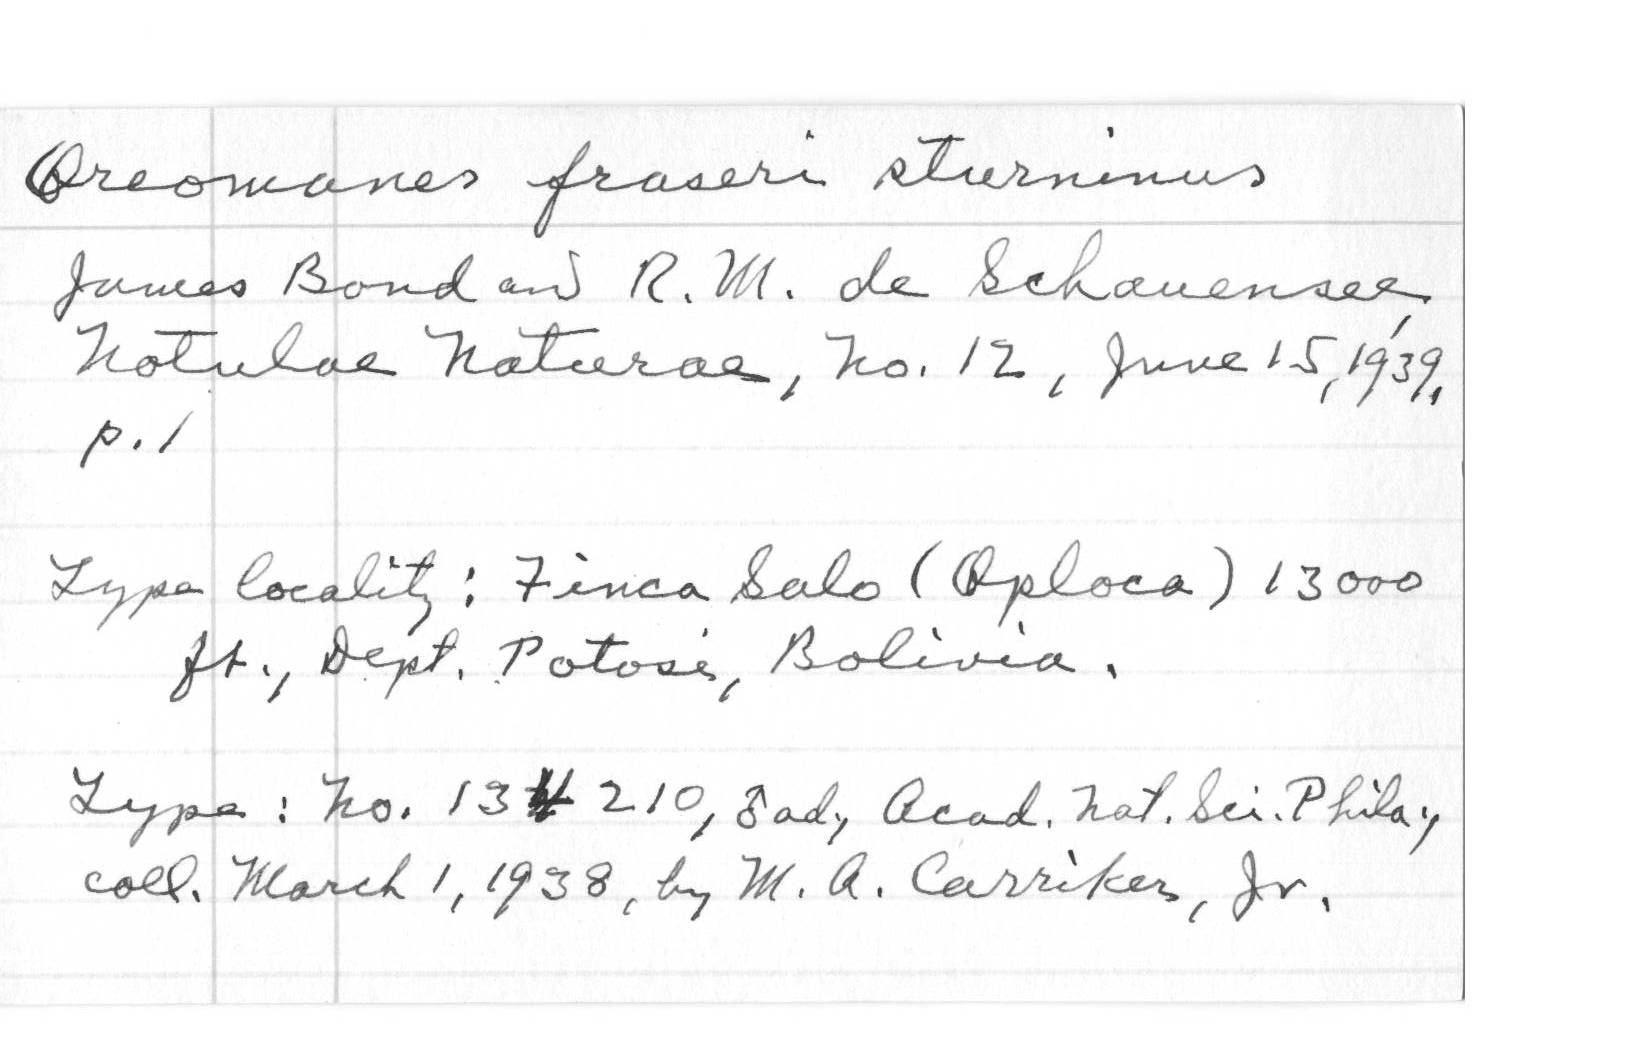 Oreomanes fraseri sturninus
James Bond and R. M. de Schauensee,
Notulae Naturae, No. 12, June 15, 1939,
p. 1
Type locality: Finca Salo (Oploca) 13000
ft., Dept. Potosi, Bolivia.
Type: No. 134210, ♂ ad., Acad. Nat. Sci. Phila.,
coll. March 1, 1938, by M. A. Carriker, Jr.